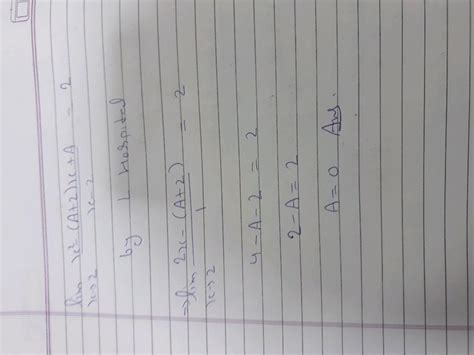 lim x→2 x² - (A+2)x + A / x - 2 = 2
by L Hospital
⇒ lim x→2 2x - (A+2) / 1 = 2
4 - A - 2 = 2
2 - A = 2
A = 0 Ans.